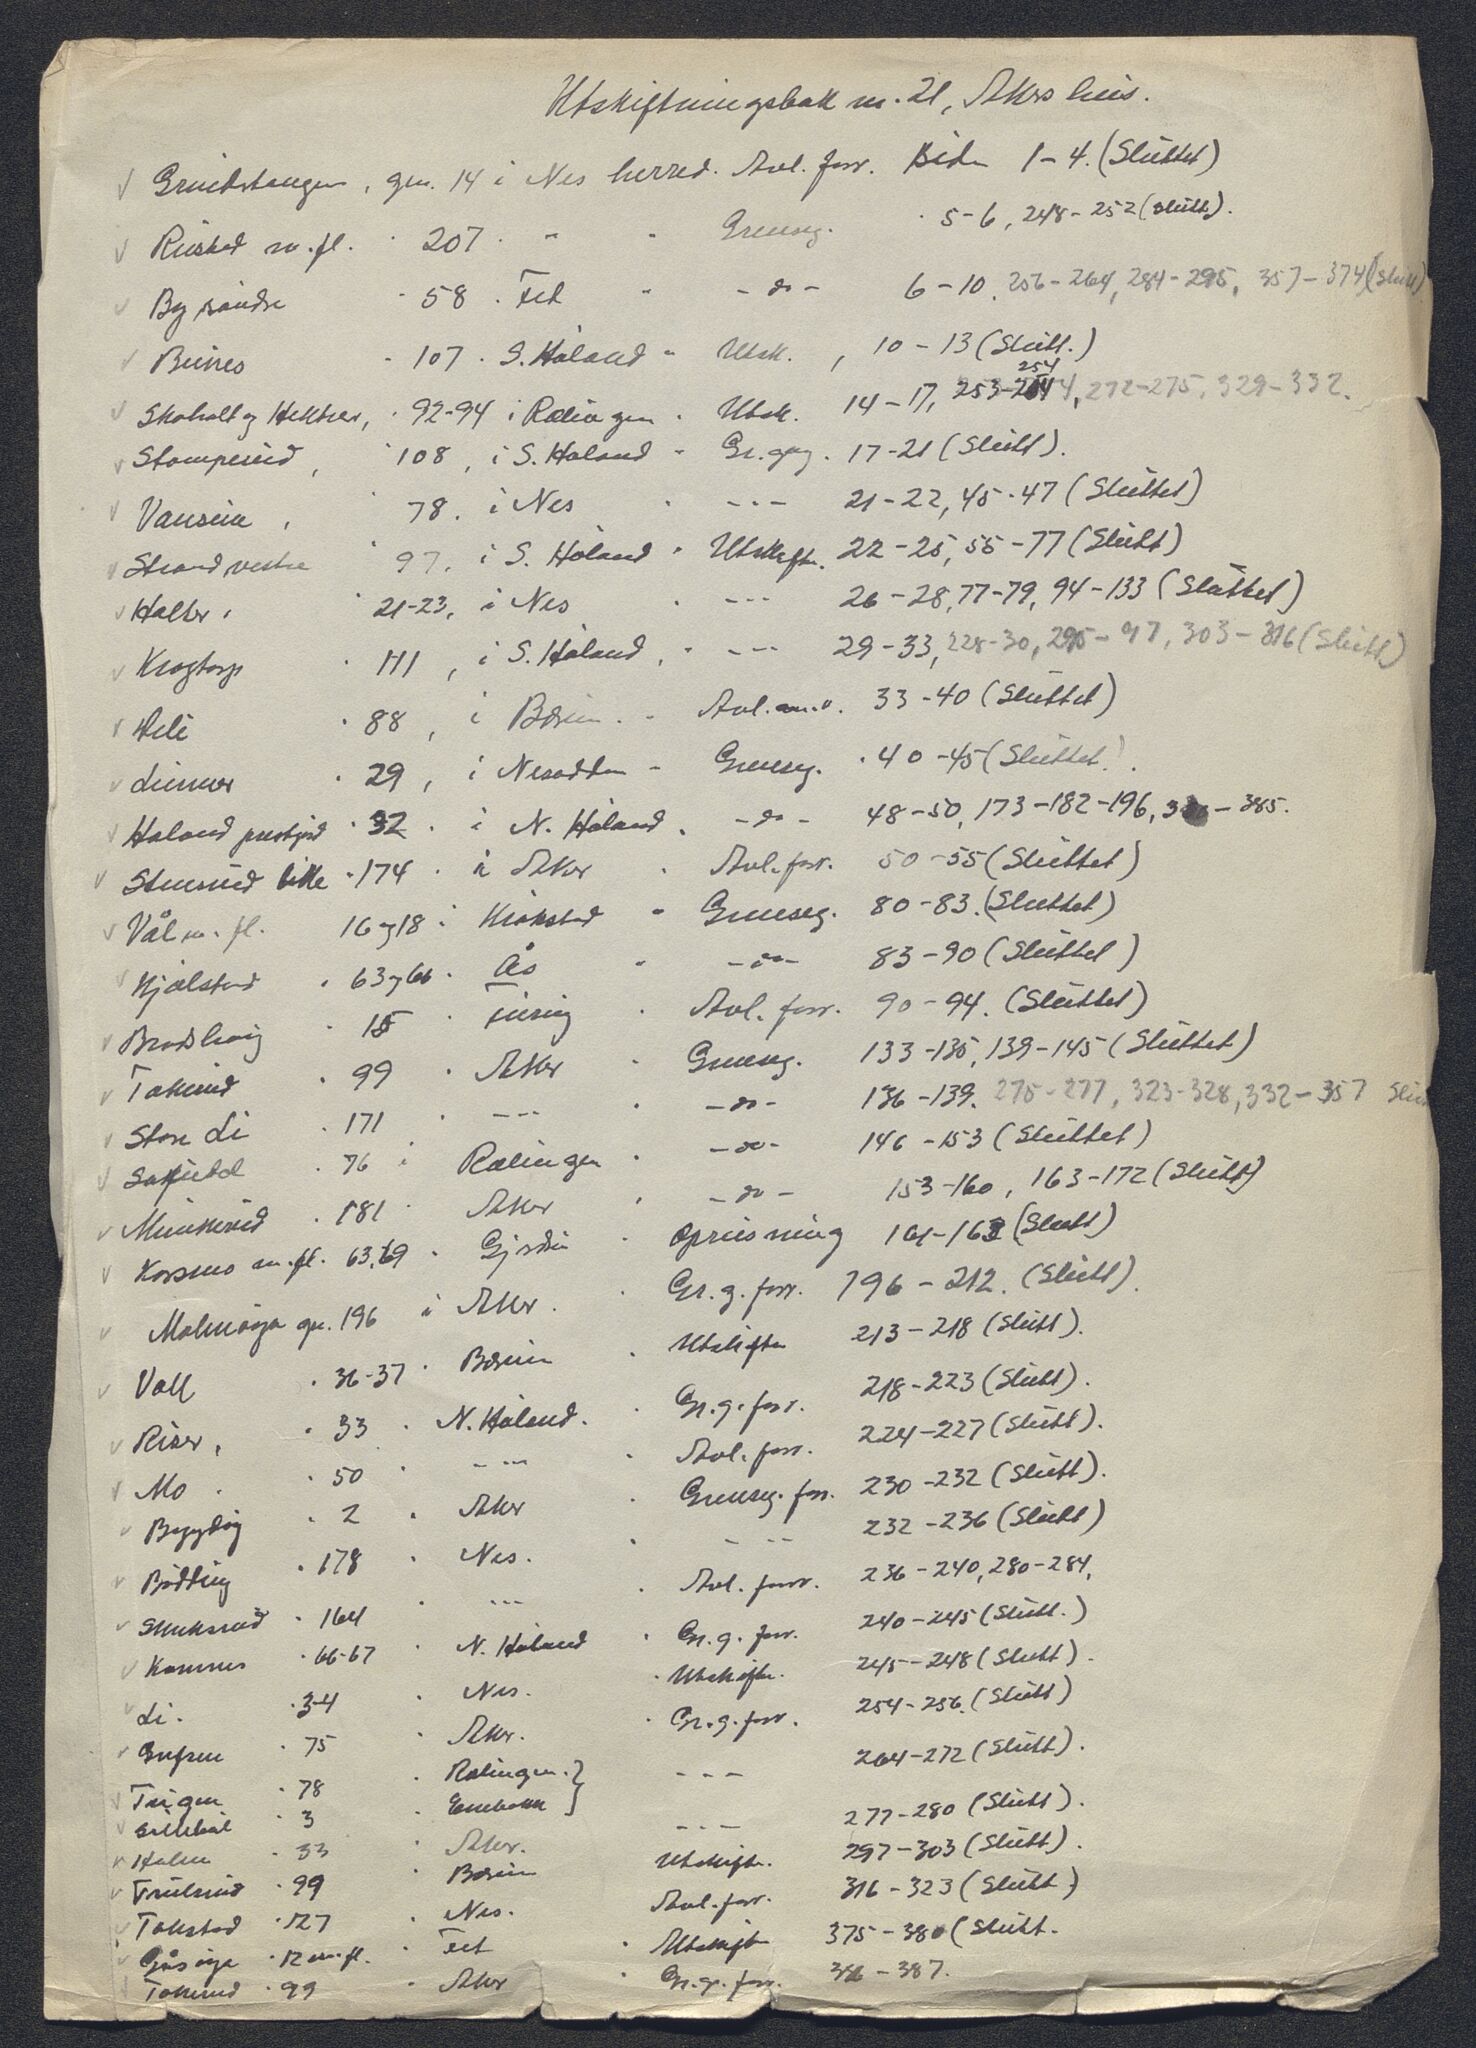 Utskiftningsbok nr. 21, Akershus.
√ Grindstangen, gnr. 14 i Nes herred. Avl. forr. Siden 1-4. (Sluttet)
√ Rustad m.fl. " 207 " " " Grenseg. " 5-6, 248-252 (slutt).
√ By søndre " 58 " Fet " -do- 6-10. 256-264, 284-295, 357-374 (Slutt)
√ Bunes " 107 " S. Høland " Utsk. , 10-13 (Slutt.)
√ Skoholt og Hektner, " 92-94 i Rælingen " Utsk. 14-17, 253-254, 272-275, 329-332.
√ Stomperud, " 108, i S. Høland " Gr.gng. 17-21 (Slutt).
√ , " 78. i Nes " --- 21-22, 45-47 (Sluttet)
√ Strand vestre " 97, i S. Høland " Utskiftn. 22-25, 55-77 (Slutt)
√ Halter. " 21-23, i Nes " --- 26-28, 77-79, 94-133 (Sluttet)
√ Krogtorp " 111, i S. Høland, " --- 29-33, 228-30, 295-97, 303-316 (Slutt)
√ " 88, i Bærum. " 33-40 (Sluttet)
√ " 29, i Nesodden " Grenseg. " 40-45 (Sluttet).
√ Høland prestgjeld " 32 " i N. Høland. " -do- 48-50, 173-182-196, -385.
√ Stensrud lille " 174 " i Aker " Avl. forr. 50-55 (Sluttet)
√ Vål m. fl. 16 og 18 i Kråkstad " Grenseg. 80-83. (Sluttet)
√ Kjølstad " 63 og 66 " Ås " -do- 83-90 (Sluttet)
√ " 15 " " Avl. forr. 90-94. (Sluttet)
√ Tokerud " 99 " Aker " Grenseg. 133-135, 139-145 (Sluttet)
√ Store Li " 171 " --- " -do- 136-139. 275-277, 323-328, 332-357
√ " 76 i Rælingen " -do- 146-153 (Sluttet)
√ Munkerud " 181 " Aker " -do- 153-160, 163-172 (Slutt)
√ Korsmo m. fl. 63,69 " Gjerdrum " Oprusning 161-163 (Slutt)
√ Malmøya gnr. 196 i Aker " Gr. g. forr. 196-212. (Slutt).
√ Voll " 36-37 " Bærum " Utskiftn 213-218 (Slutt).
√ Riser, " 33 " N. Høland. " Gr. g. forr. 218-223 (Slutt).
√ Mo " 50 " --- " Avl. forr. 224-227 (Slutt).
√ Bygdøy " 2 " Aker " Grenseg. forr. 230-232 (Slutt).
√ " 178 " Nes. " --- 232-236 (Slutt)
√ " 164 " --- " Avl. forr. 236-240, 280-284,
√ " 66-67 " N. Høland " Gr. g. forr. 240-245 (Slutt.)
√ Li. " 3-4 " Nes. " Utskiftn. 245-248 (Slutt).
√ " 75 " Aker. " Gr. g. forr. 254-256. (Slutt)
√ " 78 " Rælingen. } --- 264-272 (Slutt).
√ " 3 " Enebakk }
√ Holm " 33 " Aker. --- 277-280 (Slutt).
√ " 99 " Bærum Utskiftn. 297-303 (Slutt).
√ Tokstad " 127 " Nes. Avl. forr. 316-323 (Slutt.)
√ Gåsøya " 12 m. fl. " Fet " Utskiftn 375-380 (Slutt.
√ Tokerud " 99 " Aker " Gr. gr. forr. -387.